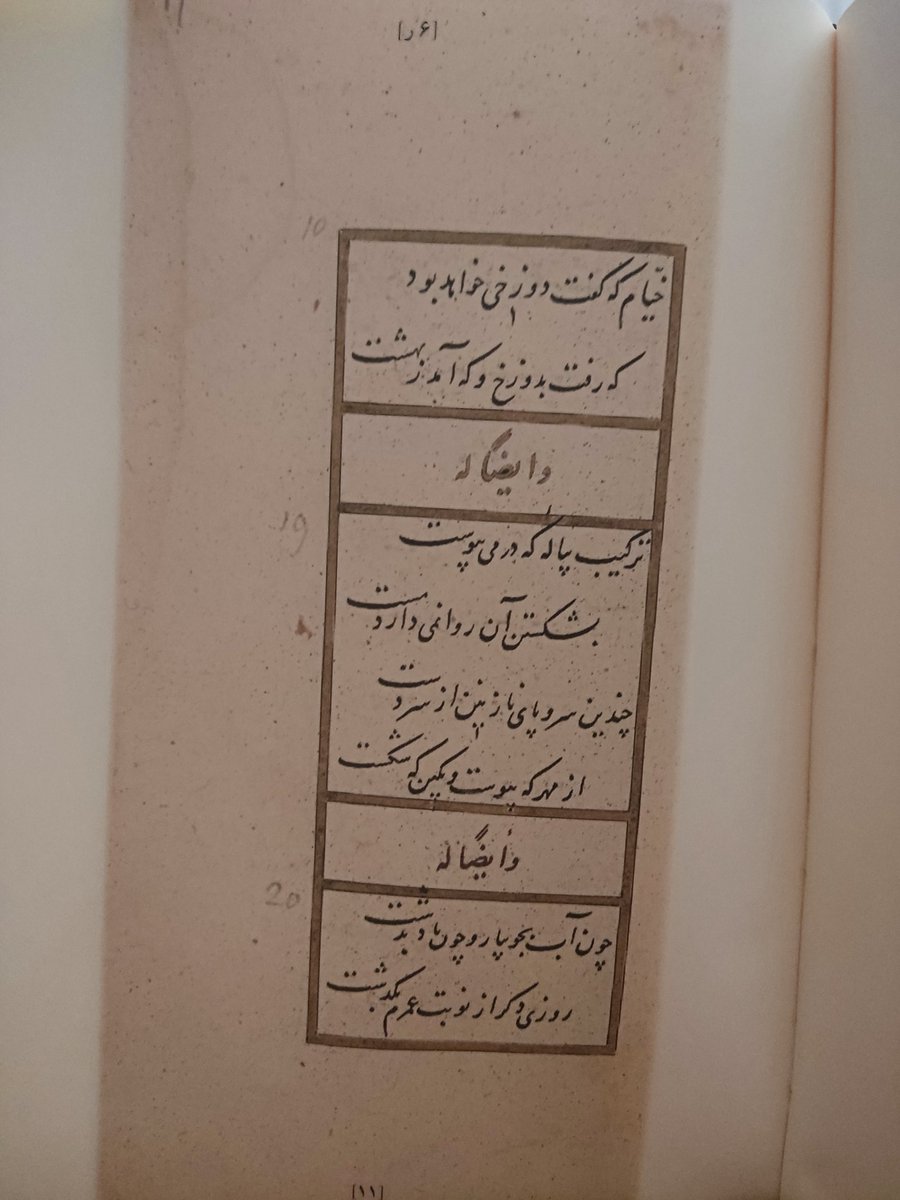 [۶ ر]
خیّام که گفت دوزخی خواهد بود
که رفت بدوزخ و که آمد ز بهشت
وایضاً له
19
ترکیب پیاله که در می پیوست
بشکستن آن روا نمی دارد مست
چندین سر و پای نازنین از سر دست
از مهر که پیوست و بکین که شکست
وأیضاً له
20
چون آب بجویبار و چون باد بدشت
روزی دکر از نوبت عمرم بکدشت
[۱۱]